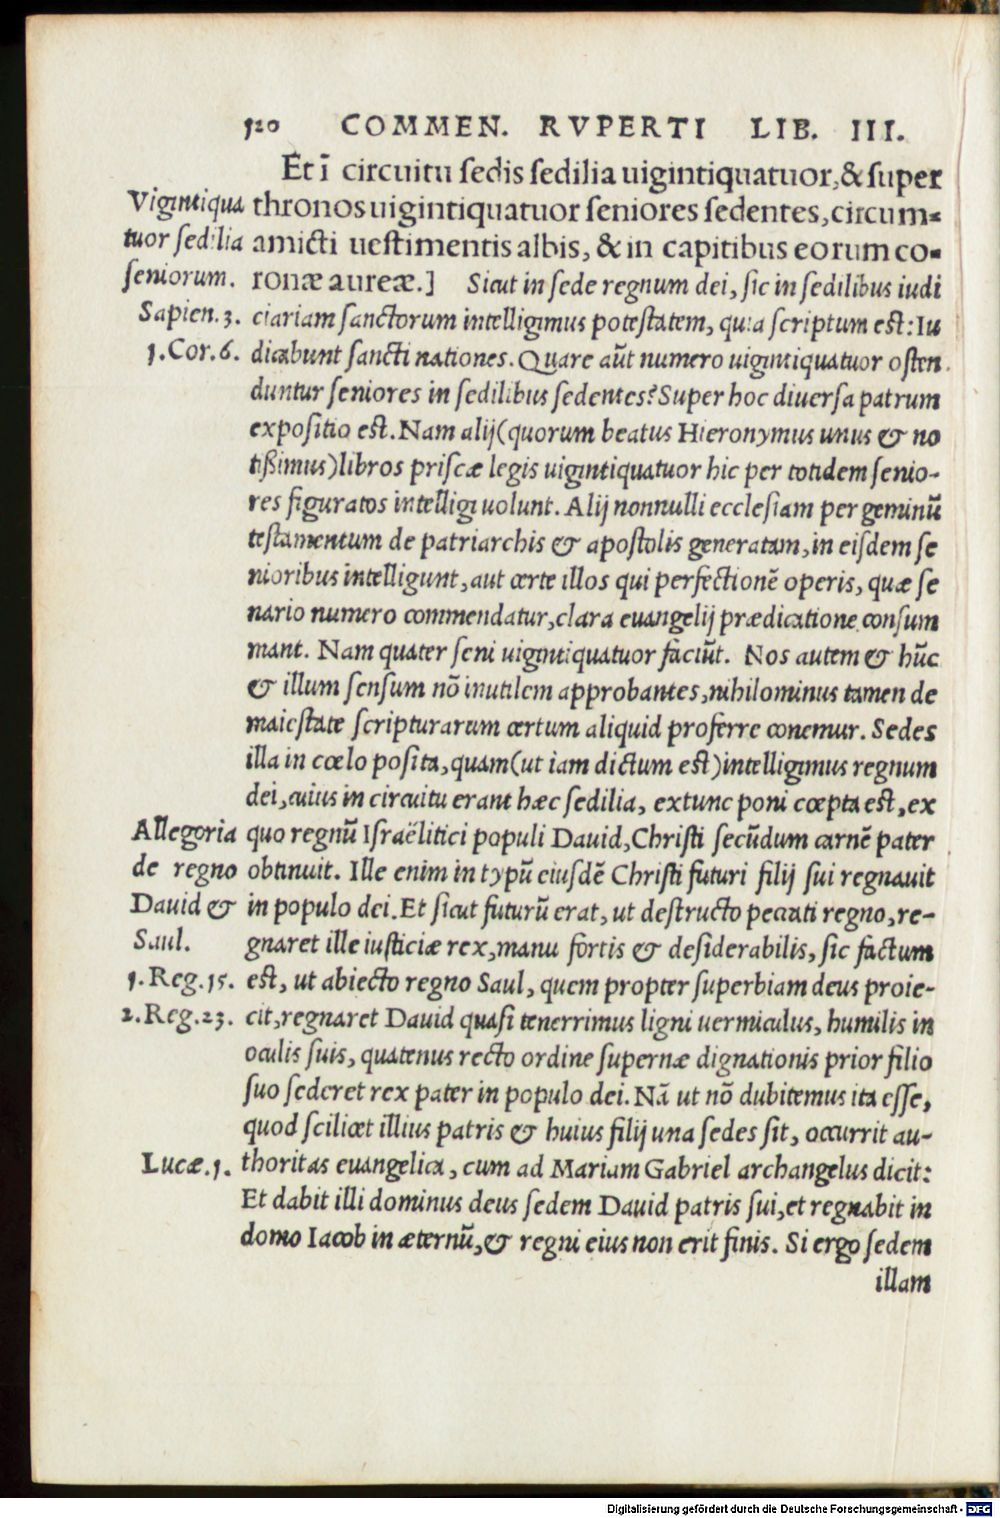 120 COMMEN. RVPERTI LIB. III.
Et ī circuitu sedis sedilia uigintiquatuor, & super
Vigintiqua thronos uigintiquatuor seniores sedentes, circum-
tuor sedilia amicti uestimentis albis, & in capitibus eorum co-
seniorum. ronæ aureæ.] Sicut in sede regnum dei, sic in sedilibus iudi
Sapien.3. ciariam sanctorum intelligimus potestatem, quia scriptum est: Iu
1.Cor.6. dicabunt sancti nationes. Quare aūt numero uigintiquatuor osten
duntur seniores in sedilibus sedentes? Super hoc diuersa patrum
expositio est. Nam alij (quorum beatus Hieronymus unus & no
tißimus) libros priscæ legis uigintiquatuor hic per totidem senio-
res figuratos intelligi uolunt. Alij nonnulli ecclesiam per geminū
testamentum de patriarchis & apostolis generatam, in eisdem se
nioribus intelligunt, aut certe illos qui perfectionē operis, quæ se
nario numero commendatur, clara euangelij prædicatione consum
mant. Nam quater seni uigintiquatuor faciūt. Nos autem & hūc
& illum sensum nō inutilem approbantes, nihilominus tamen de
maiestate scripturarum certum aliquid proferre conemur. Sedes
illa in cœlo posita, quam (ut iam dictum est) intelligimus regnum
dei, cuius in circuitu erant hæc sedilia, extunc poni cœpta est, ex
Allegoria quo regnū Israëlitici populi Dauid, Christi secūdum carnē pater
de regno obtinuit. Ille enim in typū eiusdē Christi futuri filij sui regnauit
Dauid & in populo dei. Et sicut futurū erat, ut destructo peccati regno, re-
Saul. gnaret ille iusticiæ rex, manu fortis & desiderabilis, sic factum
1.Reg.15. est, ut abiecto regno Saul, quem propter superbiam deus proie-
2.Reg.23. cit, regnaret Dauid quasi tenerrimus ligni uermiculus, humilis in
oculis suis, quatenus recto ordine supernæ dignationis prior filio
suo sederet rex pater in populo dei. Nā ut nō dubitemus ita esse,
quod scilicet illius patris & huius filij una sedes sit, occurrit au-
Lucæ.1. thoritas euangelica, cum ad Mariam Gabriel archangelus dicit:
Et dabit illi dominus deus sedem Dauid patris sui, et regnabit in
domo Iacob in æternū, & regni eius non erit finis. Si ergo sedem
illam
Digitalisierung gefördert durch die Deutsche Forschungsgemeinschaft - DFG